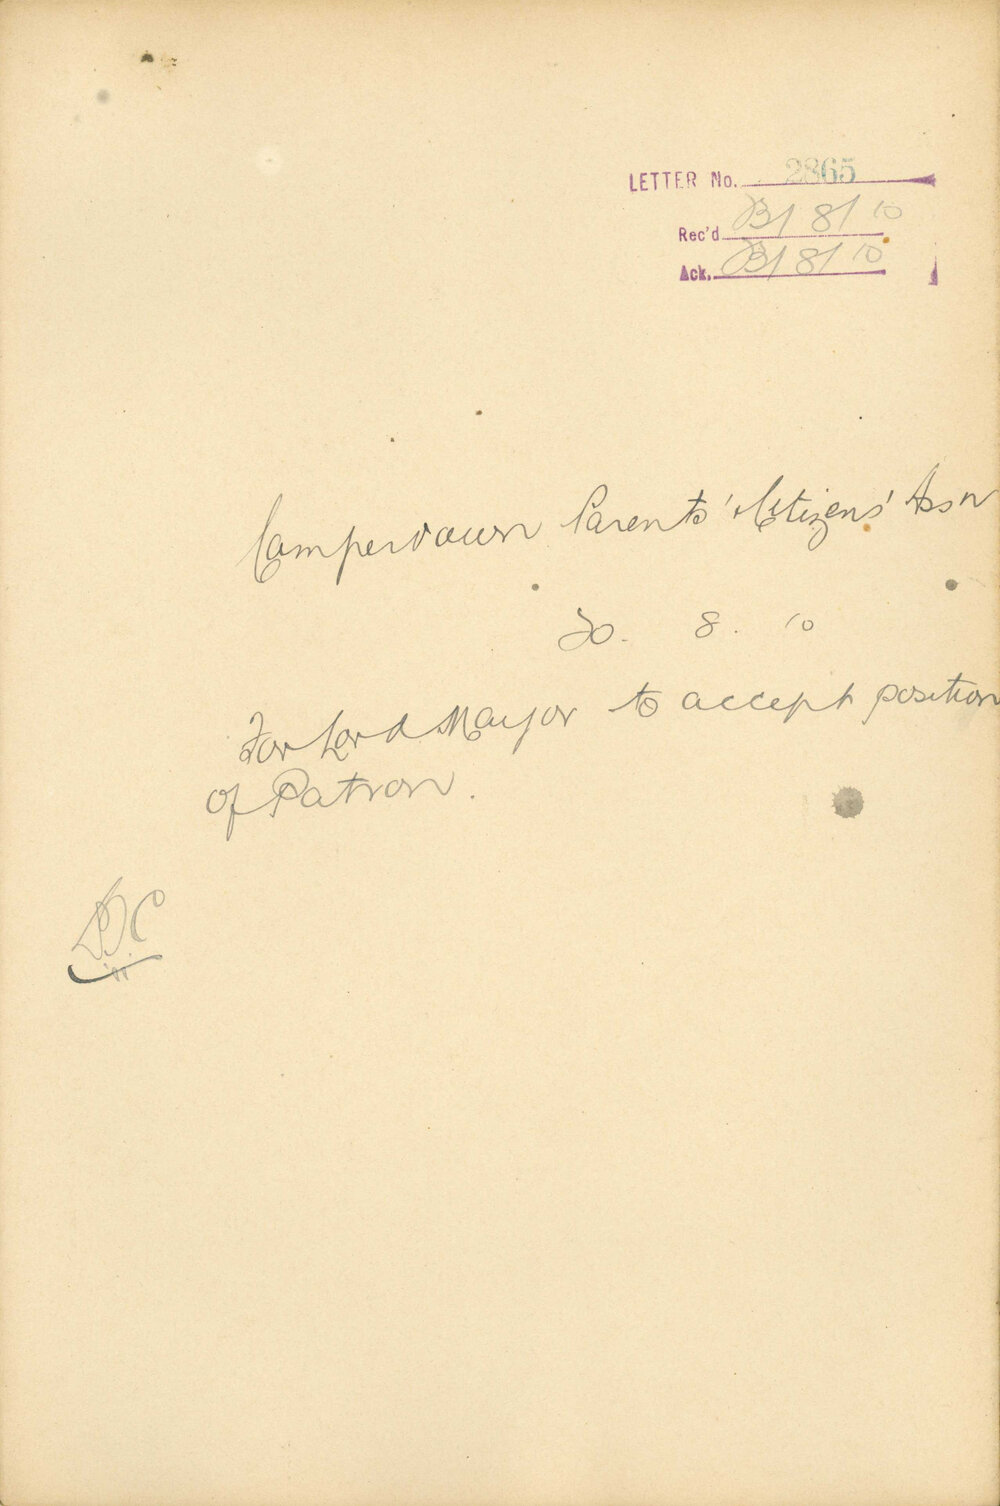 LETTER No. 2865
Rec'd 31/8/10
Ack. 31/8/10
Camperdown Parents' & Citizens' Ass'n
30. 8. 10
For Lord Mayor to accept position
of Patron.